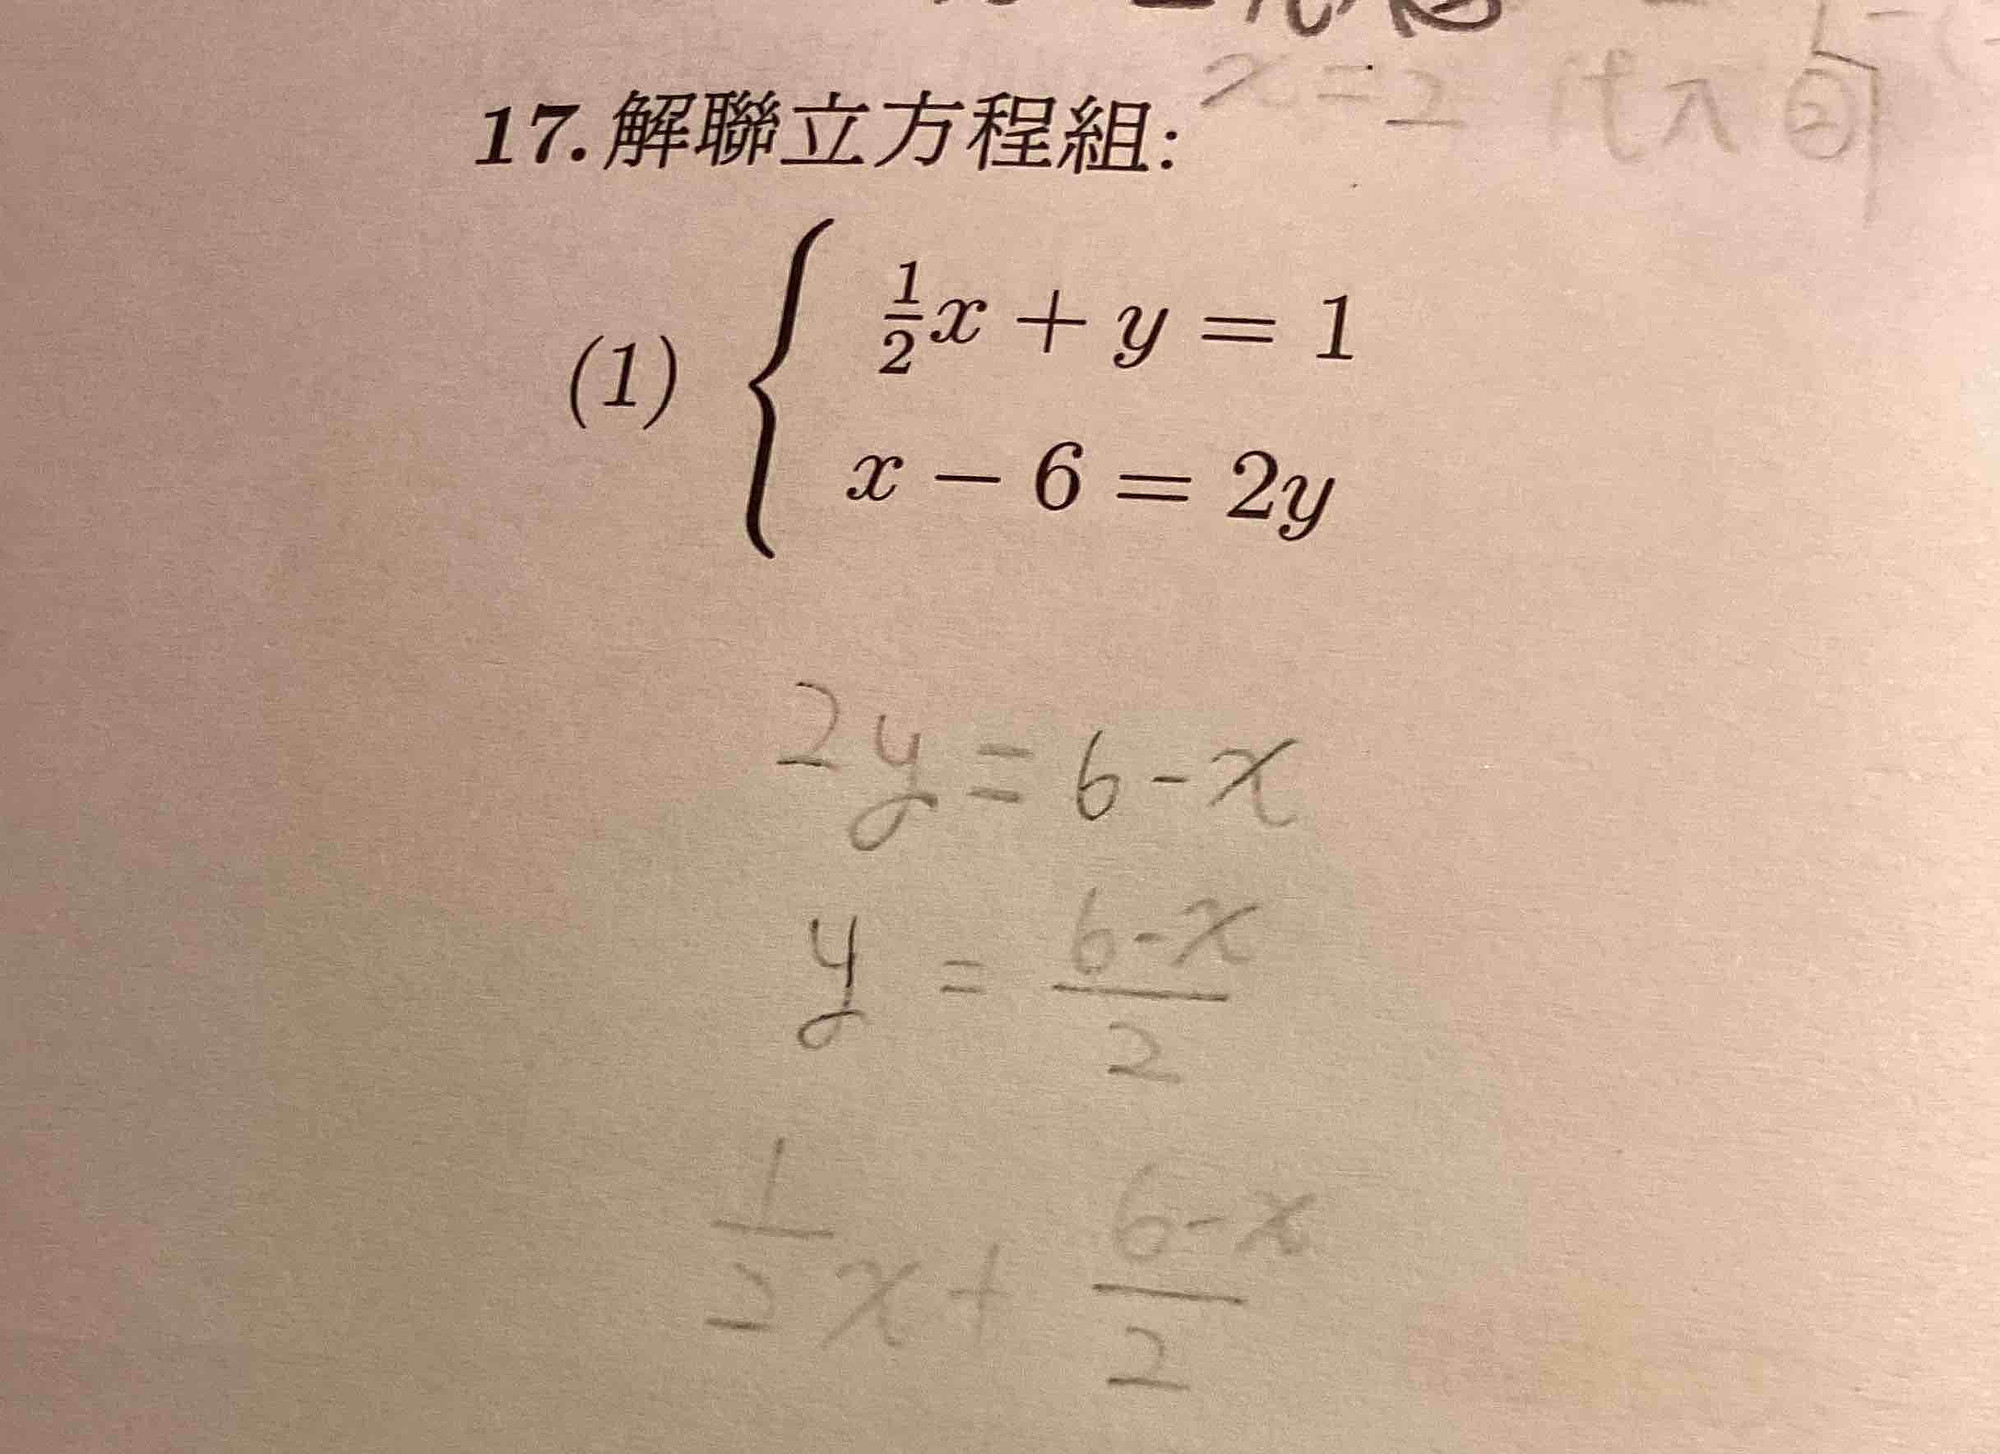 x = 2 代入 ②
17. 解聯立方程組:
(1) { ½x + y = 1
x − 6 = 2y
2y = 6 - x
y = (6-x)/2
½x + (6-x)/2